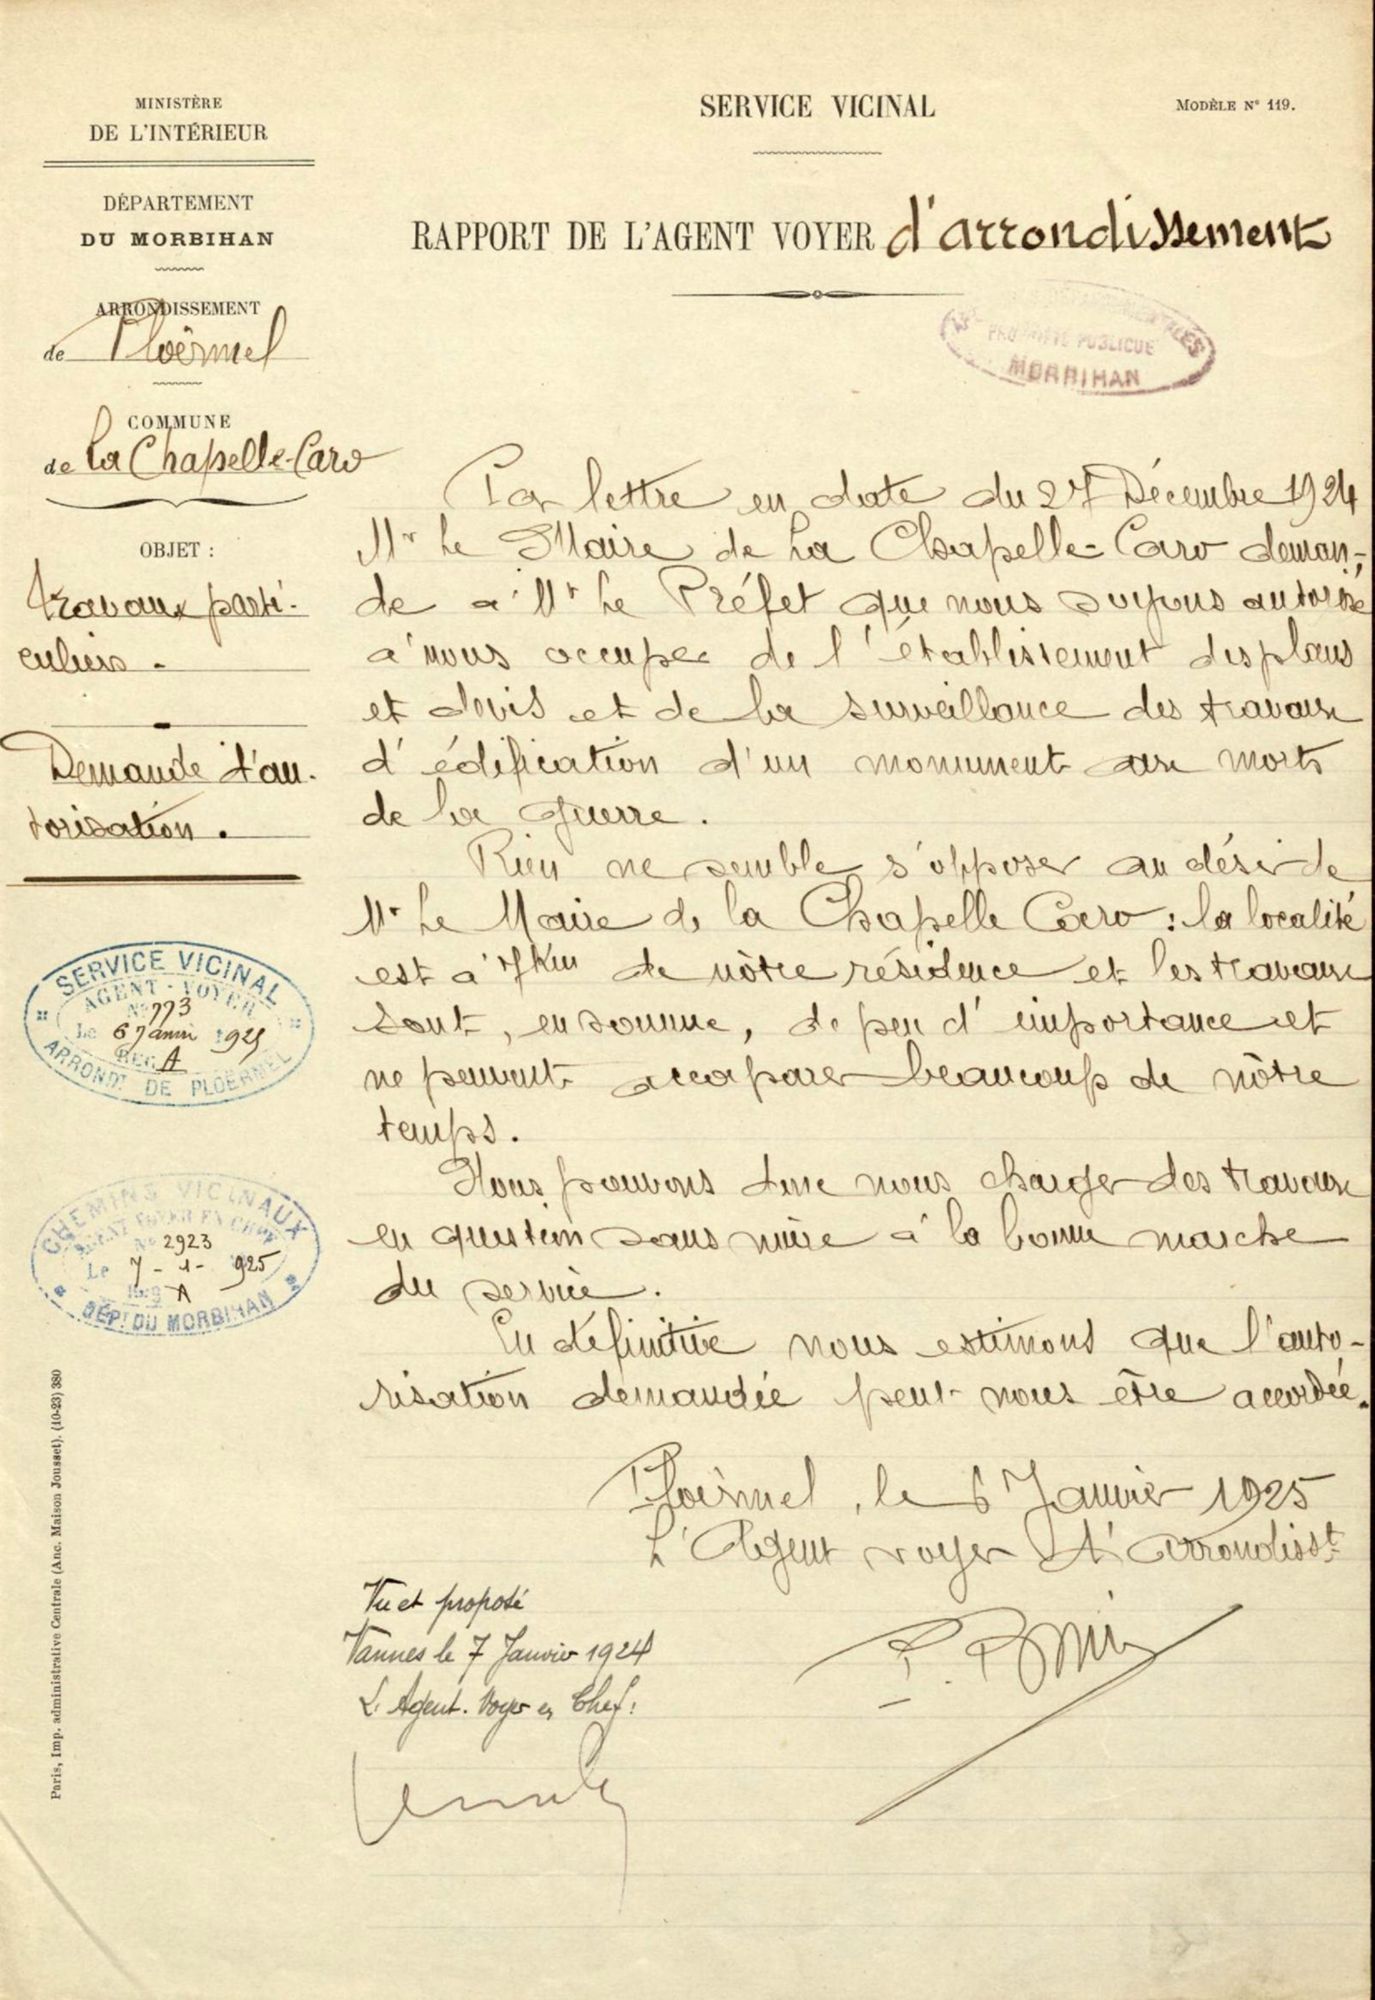 MINISTÈRE
DE L'INTÉRIEUR
DÉPARTEMENT
DU MORBIHAN
ARRONDISSEMENT
de Ploërmel
COMMUNE
de La Chapelle-Caro
OBJET :
Travaux parti-
culiers -
Demande d'au-
torisation.
SERVICE VICINAL
AGENT-VOYER
N° 773
Le 6 Janvier 1925
REG. A
ARRONDt DE PLOËRMEL
CHEMINS VICINAUX
AGENT VOYER EN CHEF
N° 2923
Le 7-1-1925
Reg A
DÉPt DU MORBIHAN
Paris, Imp. administrative Centrale (Anc. Maison Jousset). (10-23) 380
SERVICE VICINAL
MODÈLE N° 119.
RAPPORT DE L'AGENT VOYER d'arrondissement
PROPRIÉTÉ PUBLIQUE
MORBIHAN
Par lettre en date du 27 Décembre 1924
Mr Le Maire de La Chapelle-Caro deman-
de à Mr Le Préfet que nous soyons autorisé
à nous occuper de l'établissement des plans
et devis et de la surveillance des travaux
d'édification d'un monument aux morts
de la guerre.
Rien ne semble s'opposer au désir de
Mr Le Maire de la Chapelle Caro : la localité
est à 7 Km de nôtre résidence et les travaux
sont, en somme, de peu d'importance et
ne peuvent accaparer beaucoup de nôtre
temps.
Nous pouvons donc nous charger des travaux
en question sans nuire à la bonne marche
du service.
En définitive nous estimons que l'auto-
risation demandée peut nous être accordée.
Ploërmel, le 6 Janvier 1925
L'Agent voyer d'Arrondisst
Vu et proposé
Vannes le 7 Janvier 1924
L'Agent-Voyer en Chef: